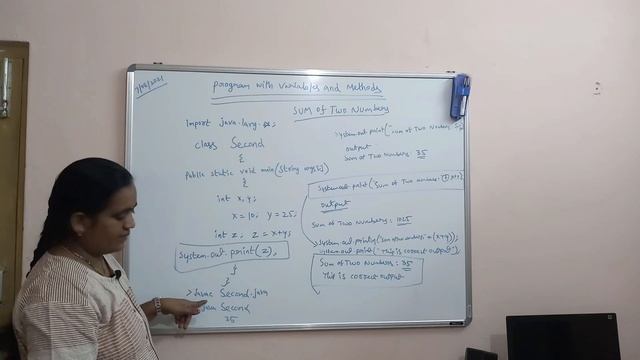 7/06/2021
Program with Variables and Methods
SUM OF TWO NUMBERS
import java.lang.*;
class Second
{
Public static void main(String args[])
{
int x, y;
x=10; y=25;
int z; z=x+y;
System.out.print(z);
}
}
>Javac Second.java
java Second
35
System.out.print("Sum of Two Numbers:
output
Sum of Two Numbers: 35
System.out.print(Sum of Two Numbers:
output
Sum of Two Numbers: 1025
(x+y));
System.out.print("This is correct output");
Sum of Two Numbers: 35
This is correct output